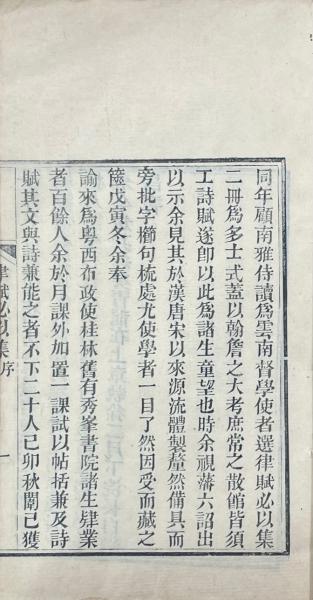 同年顧南雅侍讀爲雲南督學使者選律賦必以集
二冊爲多士式葢以翰詹之大考庶常之散館皆須
工詩賦遂卽以此爲諸生童望也時余視藩六詔出
以示余見其於漢唐宋以來源流體製釐然備具而
旁批字櫛句梳處尤使學者一目了然因受而藏之
篋戊寅冬余奉
諭來爲粵西布政使桂林舊有秀峯書院諸生肄業
者百餘人余於月課外加置一課試以帖括兼及詩
賦其文與詩兼能之者不下二十人已卯秋闈已獲
律賦必以集 序
一